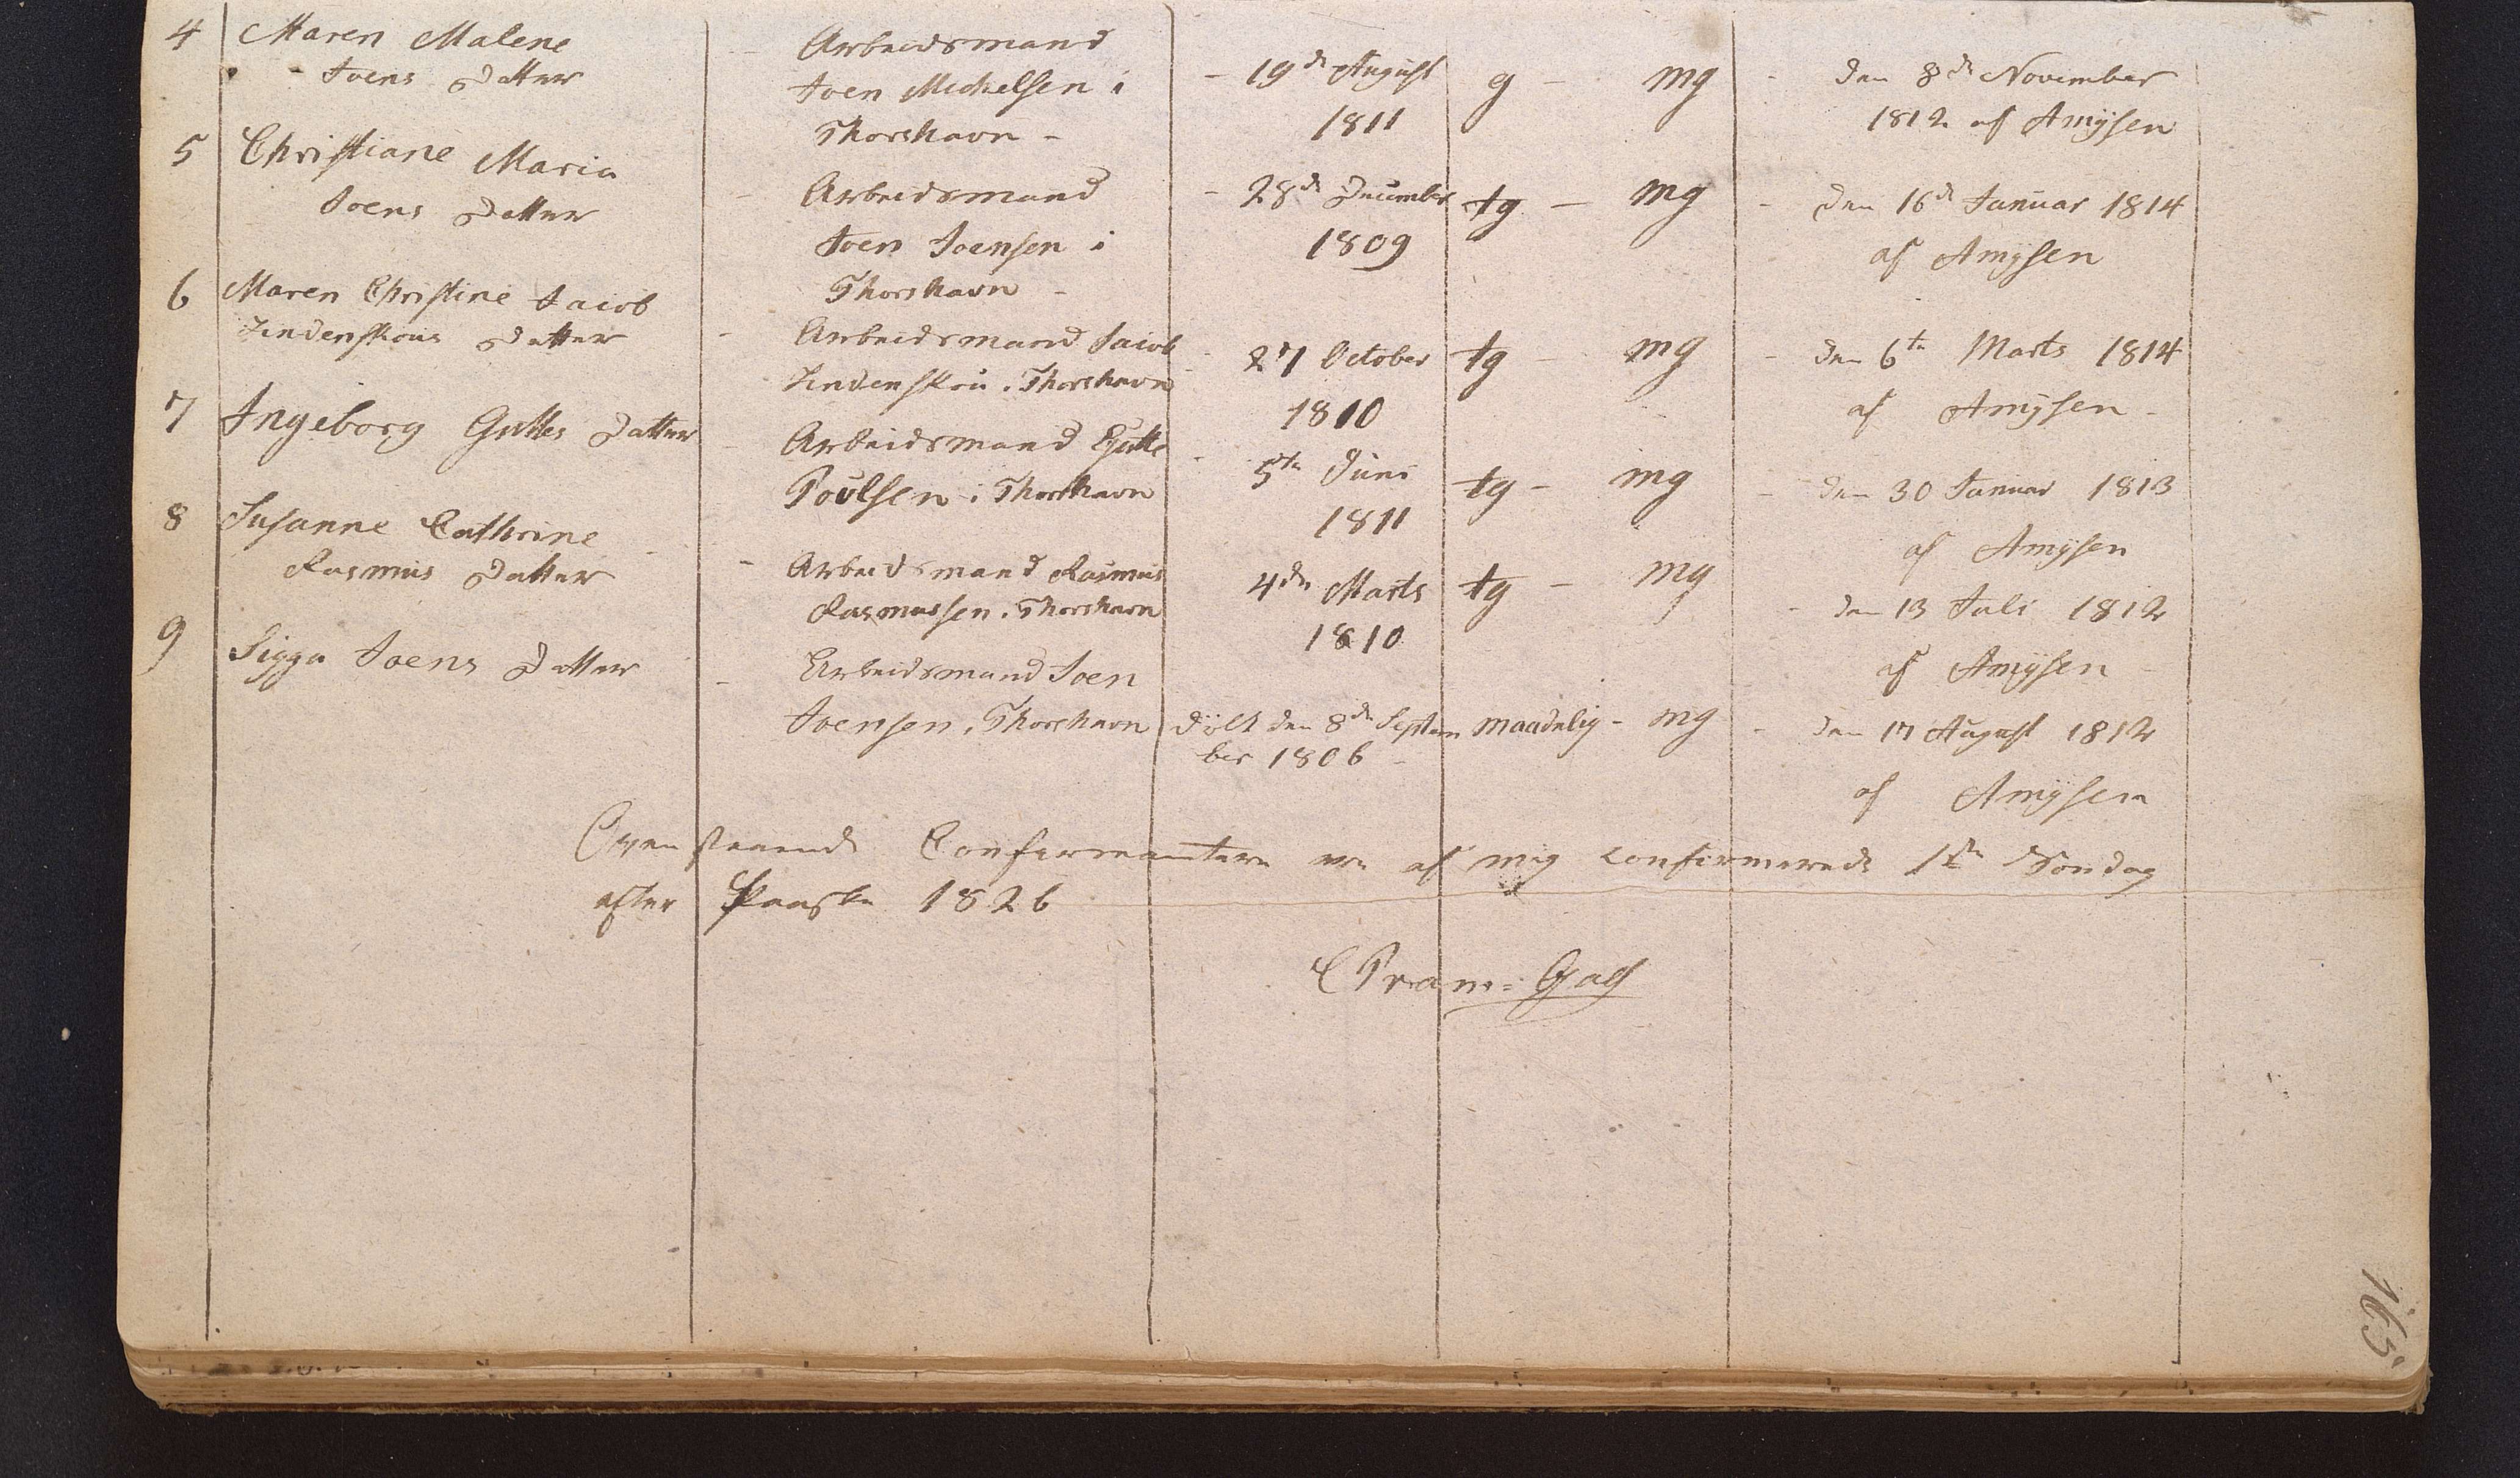 4 Maren Malene
Joens Datter
Arbeidsmand
Joen Michelsen i
Thorshavn -
- 19de August
1811
g - mg
- den 8de November
1812 af Amÿsen
5 Christiane Maria
Joens Datter
- Arbeidsmand
Joen Joensen i
Thorshavn -
- 28de December
1809
tg - mg
- den 16de Januar 1814
af Amÿsen
6 Maren Christine Jacob
Lindenskous Datter
- Arbeidsmand Jacob
Lindenskou i Thorshavn
- 27 October
1810
tg - mg
- den 6te Marts 1814
af Amÿsen -
7 Ingeborg Guttes Datter
- Arbeidsmand Gutte
Poulsen i Thorshavn
- 5te Juni
1811
tg - mg
- den 30 Januar 1813
af Amÿsen
8 Susanne Cathrine
Rasmus Datter
- Arbeidsmand Rasmus
Rasmussen i Thorshavn
4de Marts
1810
tg - mg
- den 13 Juli 1812
af Amÿsen -
9 Sigga Joens Datter
- Arbeidsmand Joen
Joensen i Thorshavn
döbt den 8de Septem
ber 1806 -
maadelig - mg
- den 17 August 1812
af Amÿsen
Ovenstaaende Confirmantere ere af mig confirmerede 1ste Söndag
efter Paaske 1826
C Pram=Gad
165